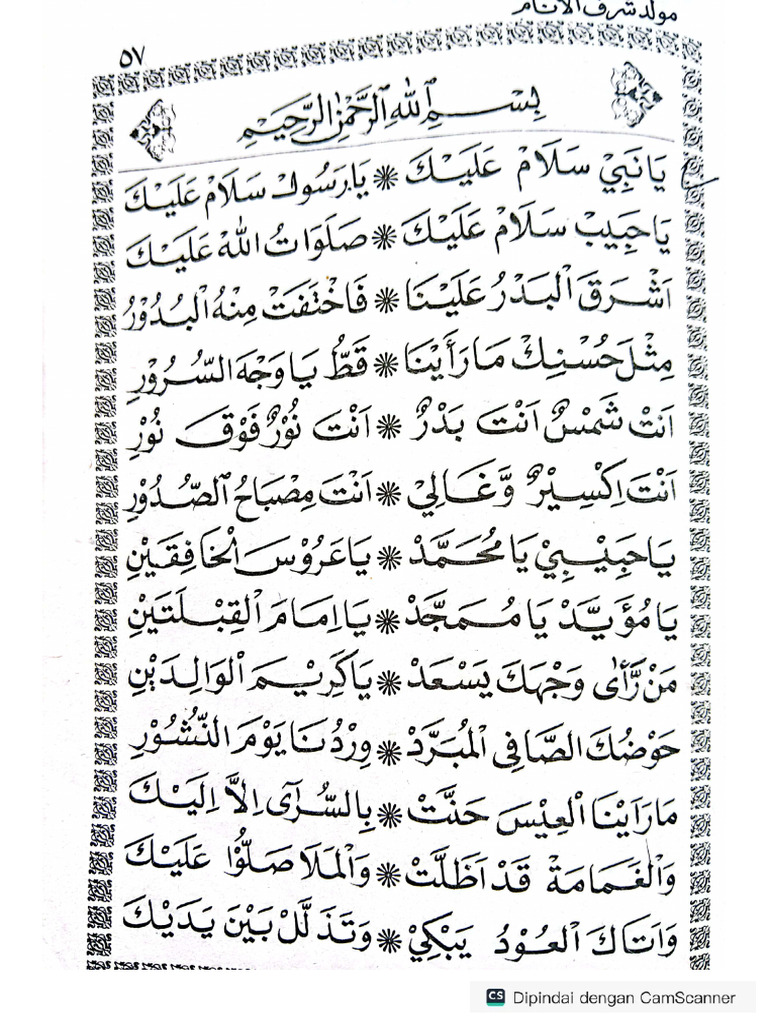 مولد شرف الانام
٥٧
بِسْمِ ٱللهِ ٱلرَّحْمٰنِ ٱلرَّحِيْمِ
يَا نَبِيْ سَلَامْ عَلَيْكَ ❋ يَا رَسُولْ سَلَامْ عَلَيْكَ
يَا حَبِيبْ سَلَامْ عَلَيْكَ ❋ صَلَوَاتُ اللهْ عَلَيْكَ
اَشْرَقَ الْبَدْرُ عَلَيْنَا ❋ فَاخْتَفَتْ مِنْهُ الْبُدُوْرُ
مِثْلَ حُسْنِكْ مَا رَأَيْنَا ❋ قَطُّ يَا وَجْهَ السُّرُوْرِ
اَنْتَ شَمْسٌ اَنْتَ بَدْرٌ ❋ اَنْتَ نُوْرٌ فَوْقَ نُوْرِ
اَنْتَ اِكْسِيْرٌ وَّغَالِيْ ❋ اَنْتَ مِصْبَاحُ ٱلصُّدُوْرِ
يَا حَبِيْبِيْ يَا مُحَمَّدْ ❋ يَا عَرُوْسَ الْخَافِقَيْنِ
يَا مُؤَيَّدْ يَا مُمَجَّدْ ❋ يَا اِمَامَ الْقِبْلَتَيْنِ
مَنْ رَّأٰى وَجْهَكَ يَسْعَدْ ❋ يَا كَرِيْمَ الْوَالِدَيْنِ
حَوْضُكَ الصَّافِى الْمُبَرَّدْ ❋ وِرْدُنَا يَوْمَ النُّشُوْرِ
مَا رَاَيْنَا الْعِيْسَ حَنَّتْ ❋ بِالسُّرٰٓى اِلَّا اِلَيْكَ
وَالْغَمَامَةْ قَدْ اَظَلَّتْ ❋ وَالْمَلَا صَلُّوْا عَلَيْكَ
وَاَتَاكَ الْعُوْدُ يَبْكِيْ ❋ وَتَذَلَّلْ بَيْنَ يَدَيْكَ
CS Dipindai dengan CamScanner